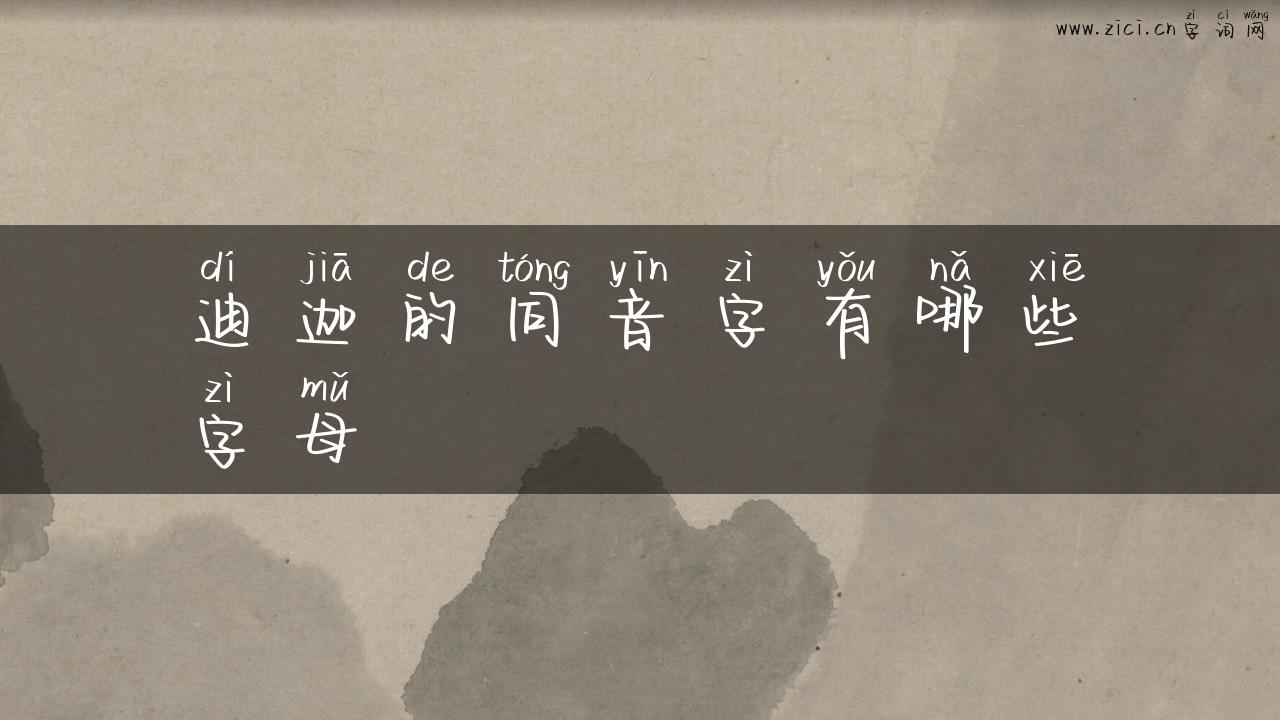 zì cí wǎng
www.zici.cn 字词网
dí jiā de tóng yīn zì yǒu nǎ xiē
迪迦的同音字有哪些
zì mǔ
字母